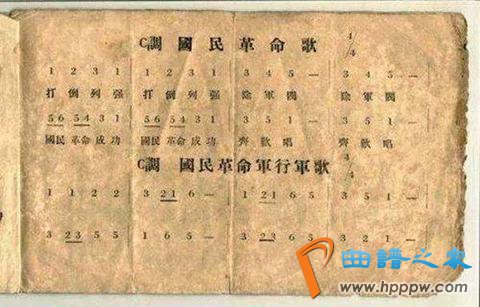 C調 國民革命歌 4/4
1 2 3 1 1 2 3 1 3 4 5 — 3 4 5 —
打倒列强 打倒列强 除軍閥 除軍閥
56 54 3 1 56 54 3 1 3 5 1 — 3 5 1 —
國民革命成功 國民革命成功 齊歡唱 齊歡唱
C調 國民革命軍行軍歌 4/4
1 1 2 2 3 21 6 — 1 21 6 5 3 5 1 —
3 23 5 5 1 6 5 — 3 23 6 5 3 2 1 —
曲譜之家
www.hpppw.com